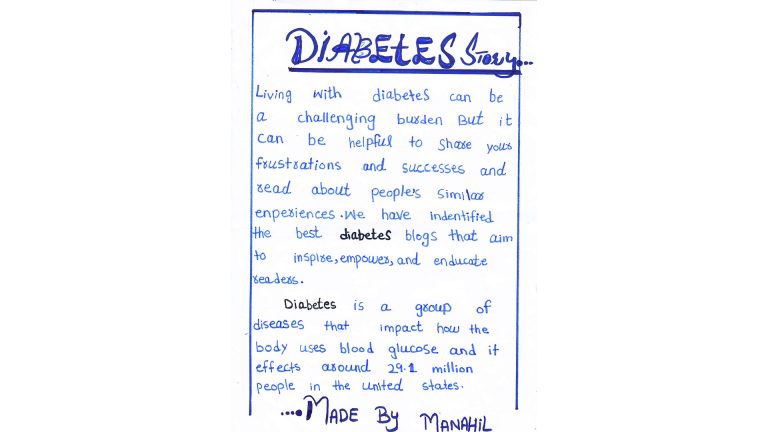 DiABEtES Story...
Living with diabetes can be
a challenging burden But it
can be helpful to share your
frustrations and successes and
read about people's similar
enperiences.We have indentified
the best diabetes blogs that aim
to inspire, empower, and enducate
readers.
Diabetes is a group of
diseases that impact how the
body uses blood glucose and it
effects around 29.1 million
people in the united states.
....MADE By MANAHIL